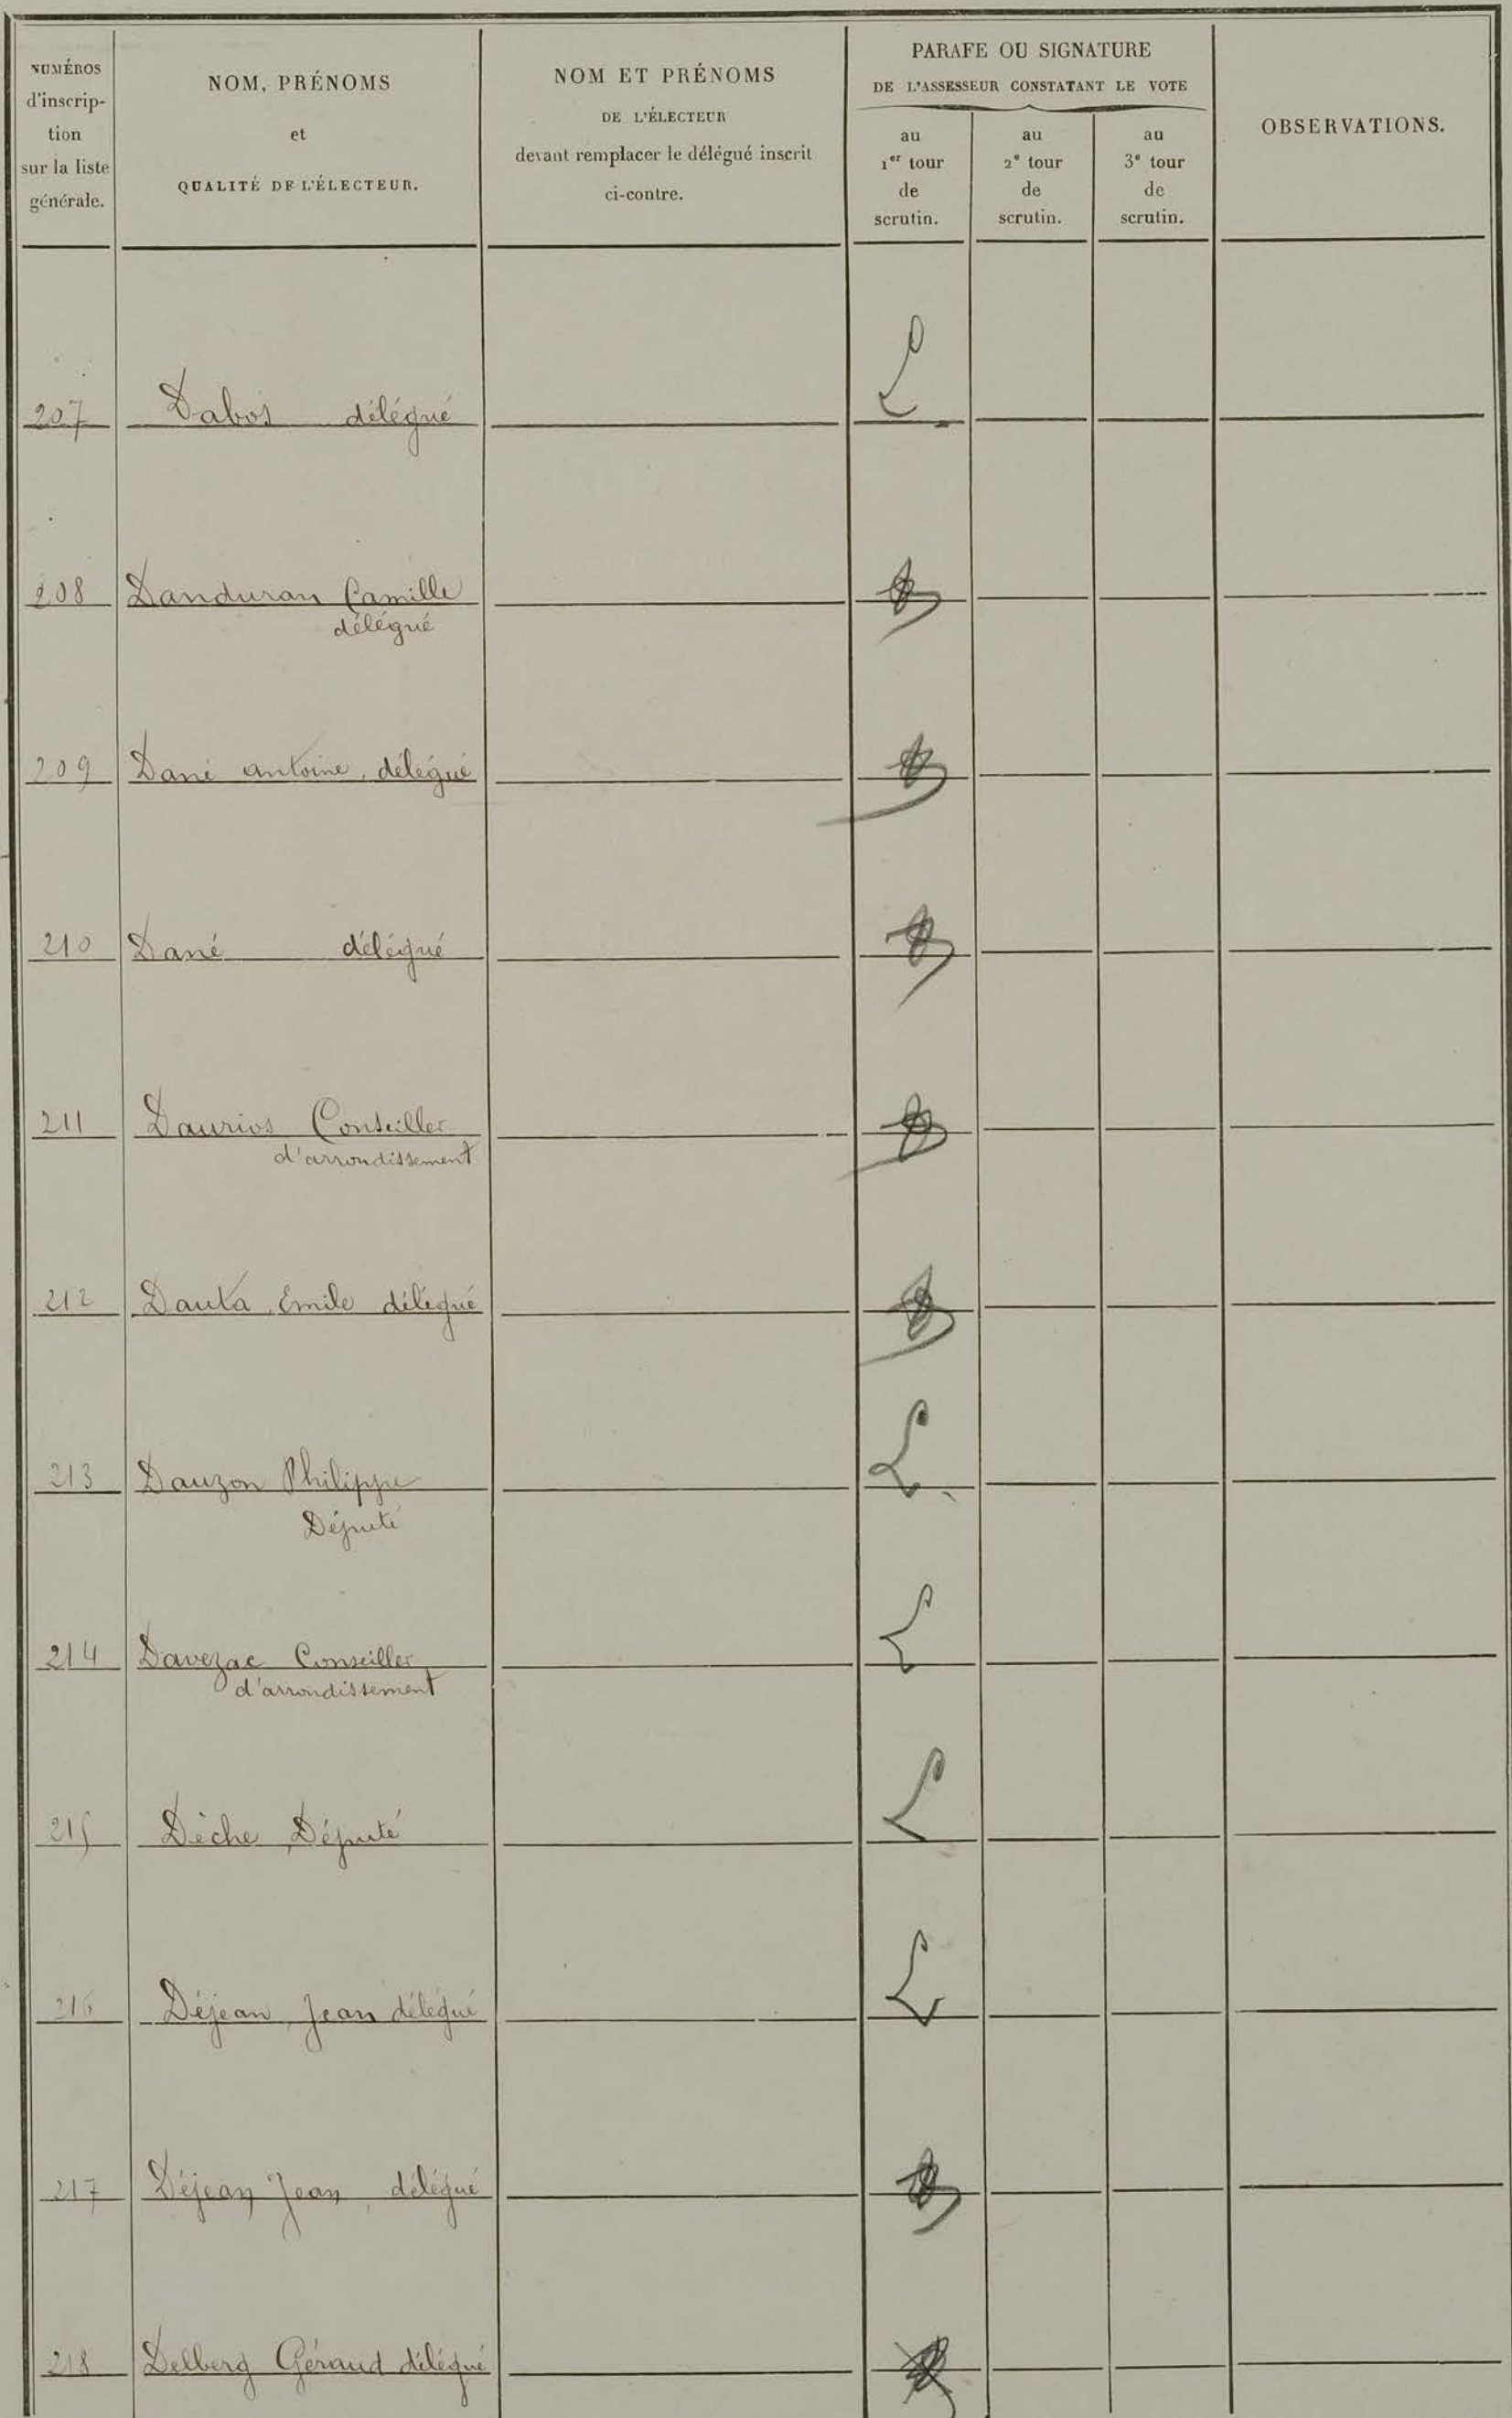 NUMÉROS
d'inscrip-
tion
sur la liste
générale.
NOM, PRÉNOMS
et
QUALITÉ DE L'ÉLECTEUR.
NOM ET PRÉNOMS
DE L'ÉLECTEUR
devant remplacer le délégué inscrit
ci-contre.
PARAFE OU SIGNATURE
DE L'ASSESSEUR CONSTATANT LE VOTE
au
1er tour
de
scrutin.
au
2e tour
de
scrutin.
au
3e tour
de
scrutin.
OBSERVATIONS.
207 Dabos délégué
208 Danduran Camille
délégué
209 Dané antoine, délégué
210 Dané délégué
211 Daurios Conseiller
d'arrondissement
212 Dauta, Émile délégué
213 Dauzon Philippe
Député
214 Davezac Conseiller
d'arrondissement
215 Dèche, Député
216 Déjean, Jean délégué
217 Déjean Jean, délégué
218 Delberg Géraud délégué